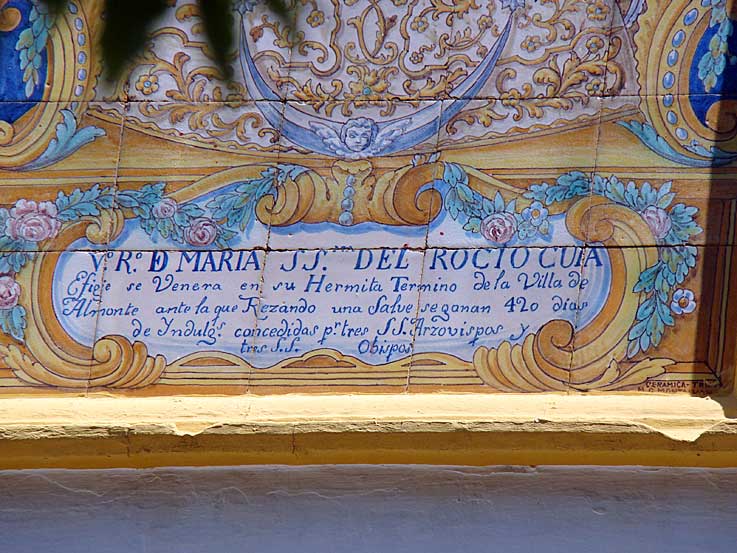 Vº. Rº. Ð MARIA SS.MA DEL ROCIO CUIA
Efigie se Venera en su Hermita Termino de la Villa de
Almonte ante la que Rezando una Salve se ganan 420 dias
de Yndulgs. concedidas pr. tres S.S. Arzovispos y
tres S.S. Obispos
CERAMICA-